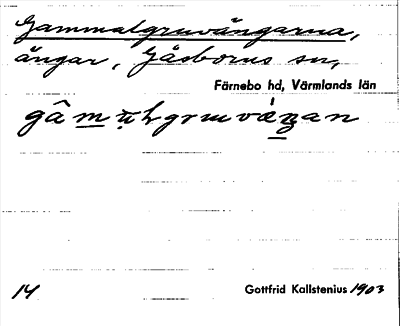 Gammalgruvängarna,
ängar, Gåsborns sn,
Färnebo hd, Värmlands län
14 Gottfrid Kallstenius 1903